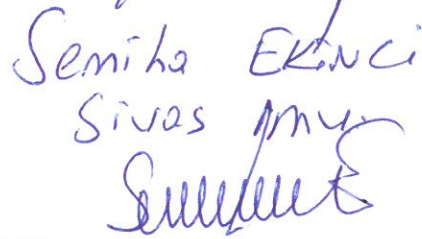 Semiha EKİNCİ
Sivas